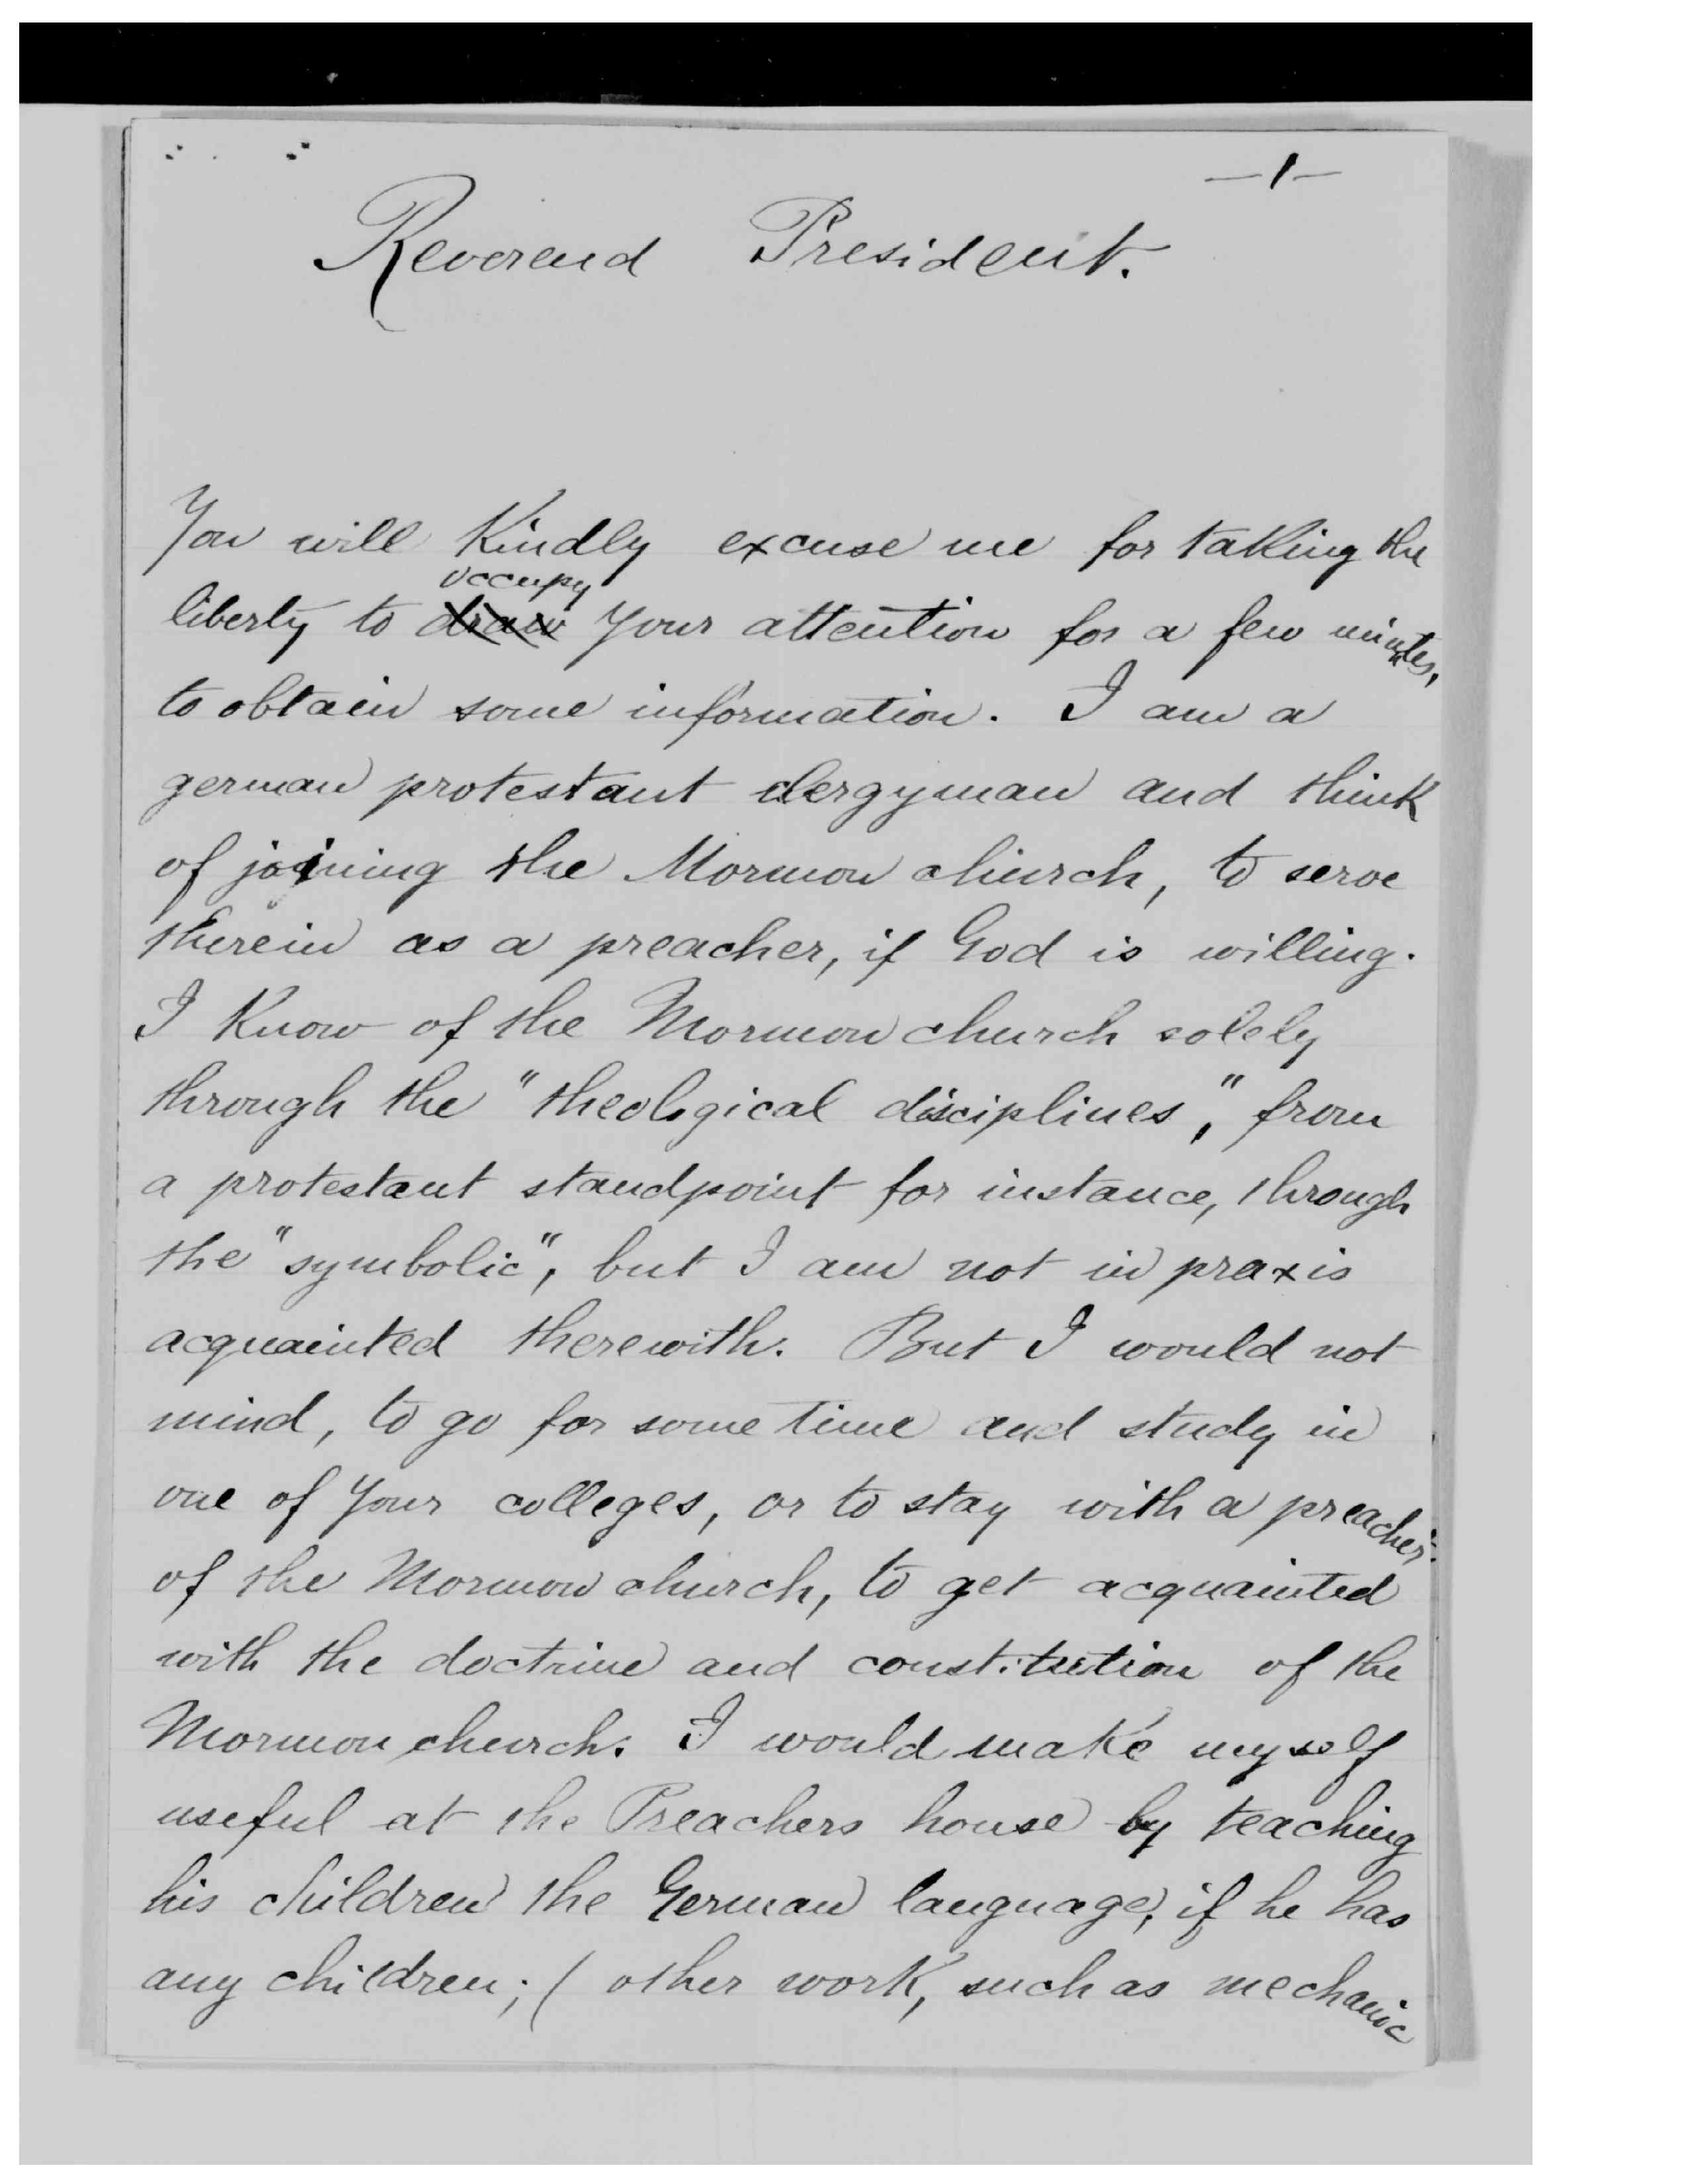 —1—
Reverend President.
You will Kindly excuse me for taking the
occupy
liberty to draw Your attention for a few minutes,
to obtain some information. I am a
german protestant clergyman and think
of joining the Mormon church, to serve
therein as a preacher, if God is willing.
I Know of the Mormon church solely
through the "theological disciplines," from
a protestant standpoint for instance, through
the "symbolic", but I am not in praxis
acquainted therewith. But I would not
mind, to go for some time and study in
one of Your colleges, or to stay with a preacher
of the Mormon church, to get acquainted
with the doctrine and constitution of the
Mormon church. I would make myself
useful at the Preachers house by teaching
his children the German language, if he has
any children; ( other work, such as mechanic